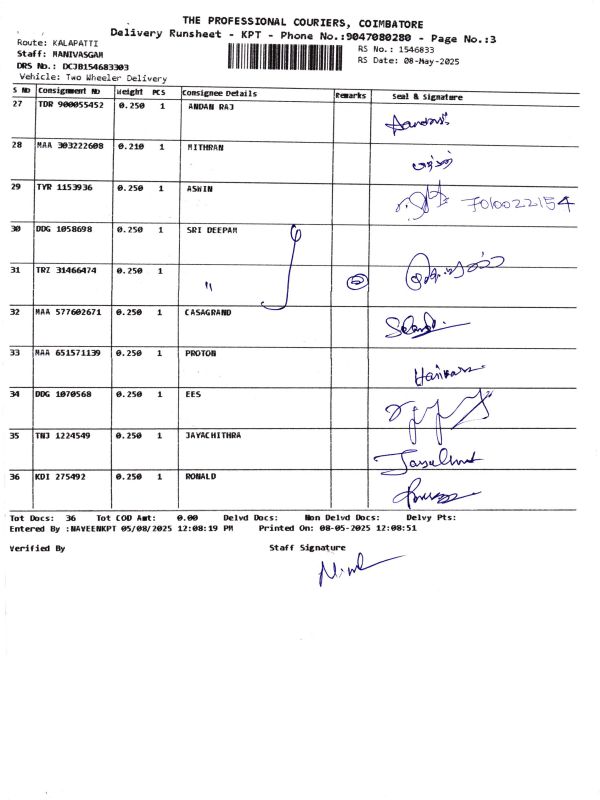 THE PROFESSIONAL COURIERS, COIMBATORE
Delivery Runsheet - KPT - Phone No.:9047080280 - Page No.:3
Route: KALAPATTI
RS No.: 1546833
Staff: MANIVASGAM
RS Date: 08-May-2025
DRS No.: DCJB154683303
Vehicle: Two Wheeler Delivery
S No Consignment No Weight PCS Consignee Details Remarks Seal & Signature
27 TDR 900055452 0.250 1 ANDAN RAJ
28 MAA 303222608 0.210 1 MITHRAN
29 TYR 1153936 0.250 1 ASWIN 7010022154
30 DDG 1058698 0.250 1 SRI DEEPAM
31 TRZ 31466474 0.250 1 "
32 MAA 577602671 0.250 1 CASAGRAND
33 MAA 651571139 0.250 1 PROTON
34 DDG 1070568 0.250 1 EES
35 TNJ 1224549 0.250 1 JAYACHITHRA
36 KDI 275492 0.250 1 RONALD
Tot Docs: 36 Tot COD Amt: 0.00 Delvd Docs: Non Delvd Docs: Delvy Pts:
Entered By :NAVEENKPT 05/08/2025 12:08:19 PM Printed On: 08-05-2025 12:08:51
Verified By Staff Signature